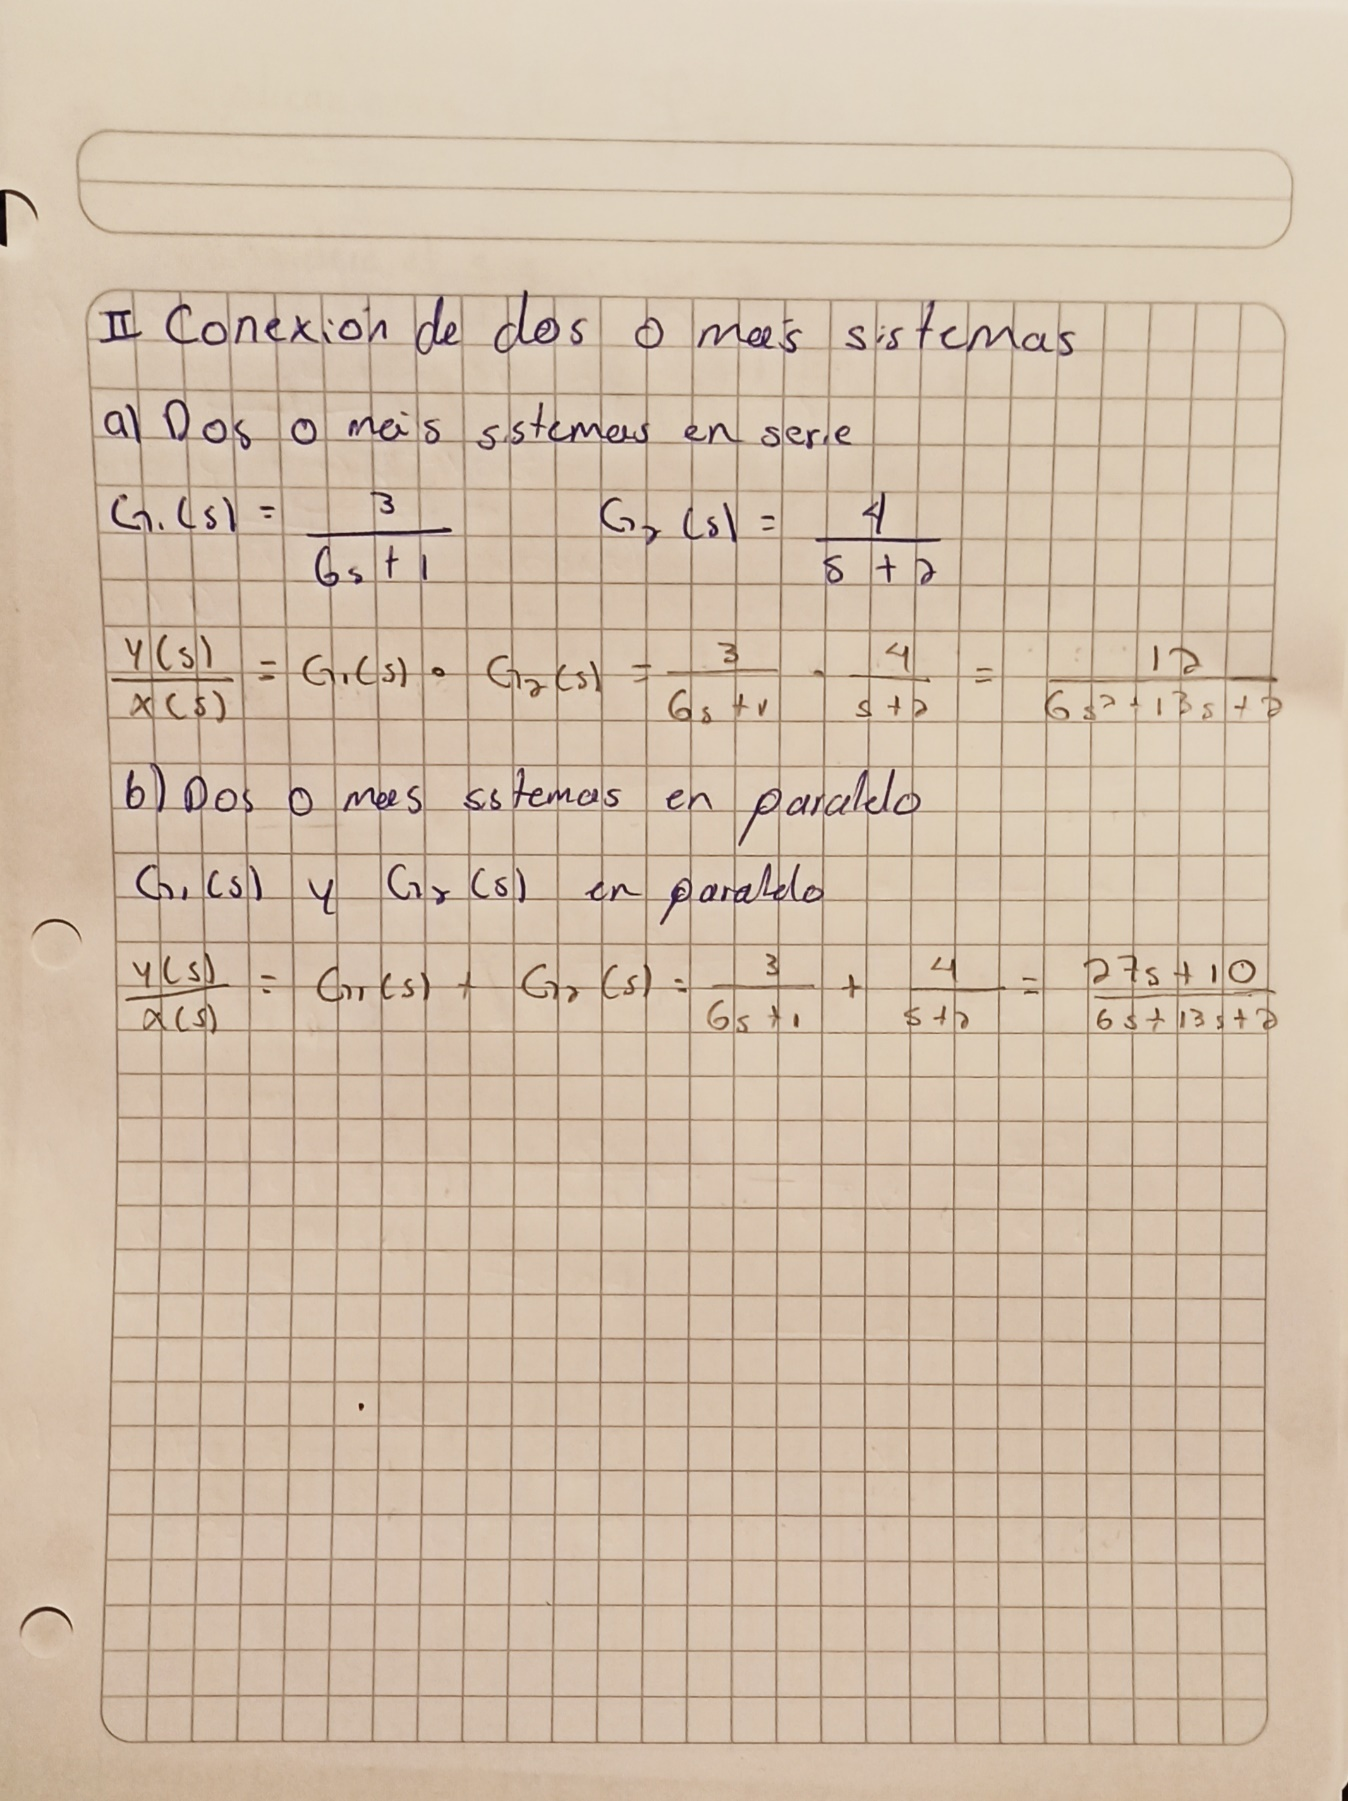 II Conexión de dos o más sistemas
a) Dos o más sistemas en serie
G₁(s) = 3/(6s+1)   G₂(s) = 4/(s+2)
Y(s)/X(s) = G₁(s) · G₂(s) = 3/(6s+1) · 4/(s+2) = 12/(6s²+13s+2)
b) Dos o mas sstemas en paralelo
G₁(s) y G₂(s) en paralelo
Y(s)/X(s) = G₁(s) + G₂(s) = 3/(6s+1) + 4/(s+2) = (27s+10)/(6s+13s+2)